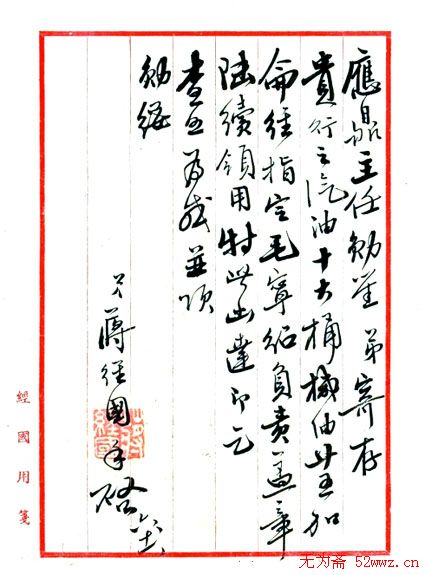 應鼎主任勛鑒 弟寄存
貴行之汽油十大桶機油廿五加
侖經指定毛寧紹負責蓋章
陸續領用特此函達即乞
查照為感並頌
勛綏
弟蔣經國手啟
經國用箋
无为斋 52wwz.cn